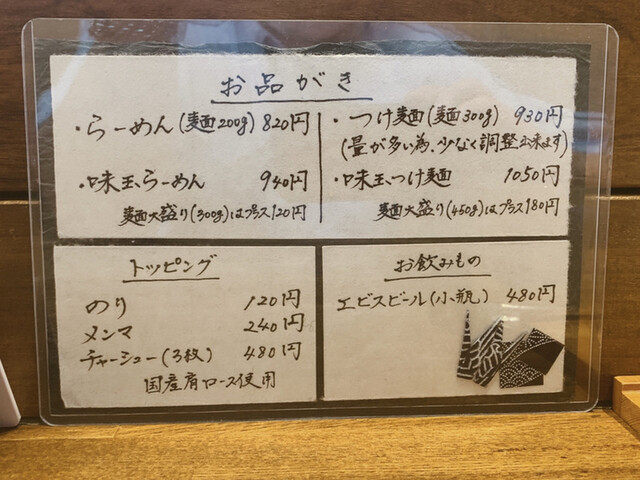 お品がき
・らーめん(麺200g) 820円
・味玉らーめん 940円
麺大盛り(300g)はプラス120円
・つけ麺(麺300g) 930円
(量が多い為、少なく調整出来ます)
・味玉つけ麺 1050円
麺大盛り(450g)はプラス180円
トッピング
のり 120円
メンマ 240円
チャーシュー(3枚) 480円
国産肩ロース使用
お飲みもの
エビスビール(小瓶) 480円